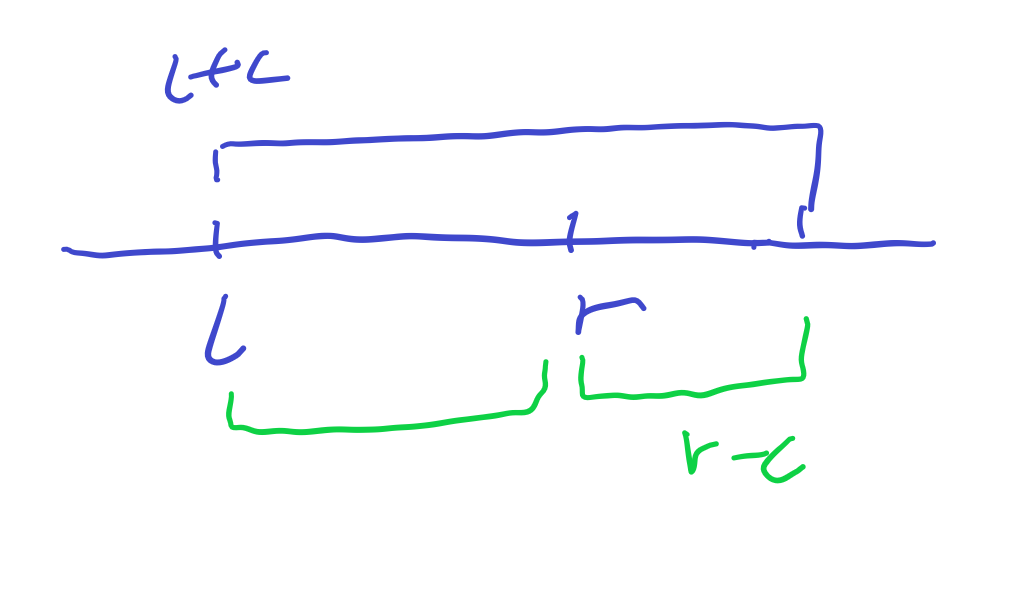 l+c
l r
r-c